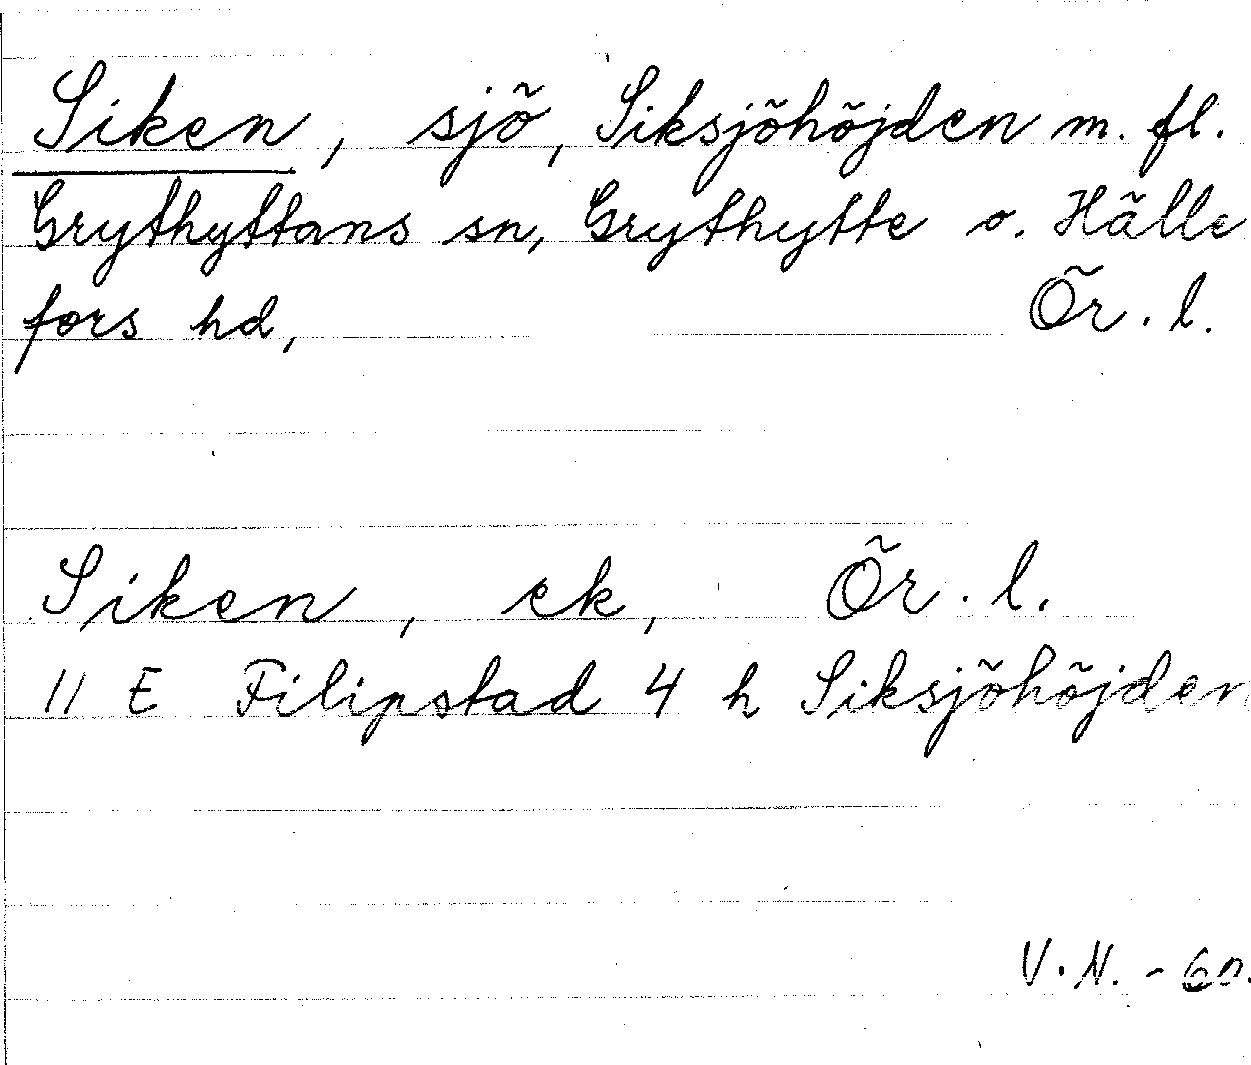 Siken, sjö, Siksjöhöjden m. fl.
Grythyttans sn, Grythytte o. Hälle
fors hd, Ör. l.
Siken, ek, Ör. l.
11 E Filipstad 4 h Siksjöhöjden
V. N. - 60.